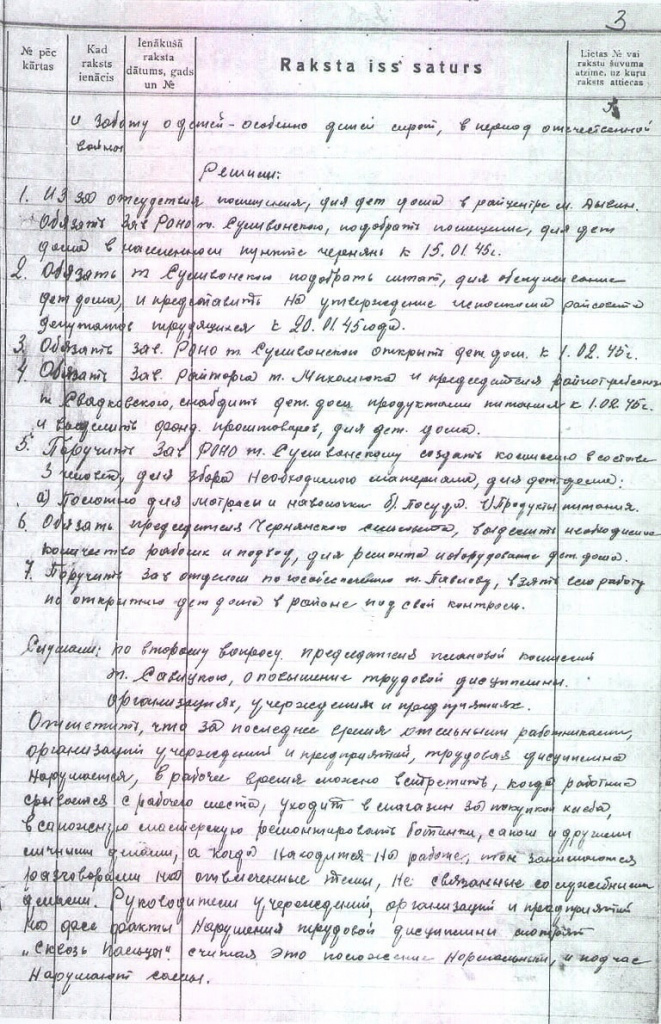 3
№ pēc kārtas
Kad raksts ienācis
Ienākušā raksta dātums, gads un №
Raksta iss saturs
Lietas № vai rakstu šuvuma atzīme, uz kuŗu raksts attiecas
и заботу о детей - особенно детей сирот, в период отечественной
войны
Решили:
1. Из за отсудствия помещения, для дет дома в райцентре м. Дывин.
Обязать Зав РОНО т. Суливанского, подобрать помещение, для дет
дома в населенном пункте Черняны к 15.01.45г.
2. Обязать т Суливанского подобрать штат, для обслуживание
дет дома, и представить на утверждение исполкома райсовета
депутатов трудящихся к 20.01.45 года.
3. Обязать зав. РОНО т. Суливанского открыть дет дом. к 1.02.45г.
4. Обязать зав. Райторга т. Миколюка и председателя райпотребсоюза
т. Свадковского, снабдить дет. дом продуктами питания к 1.02.45г.
и выделить фонд. промтоваров, для дет. дома.
5. Поручить Зав РОНО т. Суливанскому создать комиссию в составе
3 человек, для збора необходимого материала, для дет дома:
а) Полотно для матрасы и наволочки б) Посуда. в) Продукты питания.
6. Обязать председателя Чернянского сельсовета, выделить необходимое
количество рабочих и подвод, для ремонта и оборудование дет. дома.
7. Поручить зав отделом по т. Павлову, взять всю работу
по открытию дет дома в районе под свой контроль.
Слушали: по второму вопросу. председателя плановой комиссии
т. Савицкого, о повышение трудовой дисциплины.
организациях, учереждения и предприятиях.
Отметить, что за последнее время отдельными работниками,
организаций учереждений и предприятий, трудовая дисциплина
нарушается, в рабочее время можно встретить, когда работник
срывается с рабочего места, уходит в магазин за покупкой хлеба,
в сапожную мастерскую ремонтировать ботинки, сапог и другими
личными делами, а когда находится на работе, то занимаются
разговорами на отвлеченные темы, не связанные со служебными
делами. Руководители учереждений, организаций и предприятий
на факты нарушения трудовой дисциплины смотрят
„Сквозь пальцы" считая это положение нормальным, и подчас
нарушают сами.